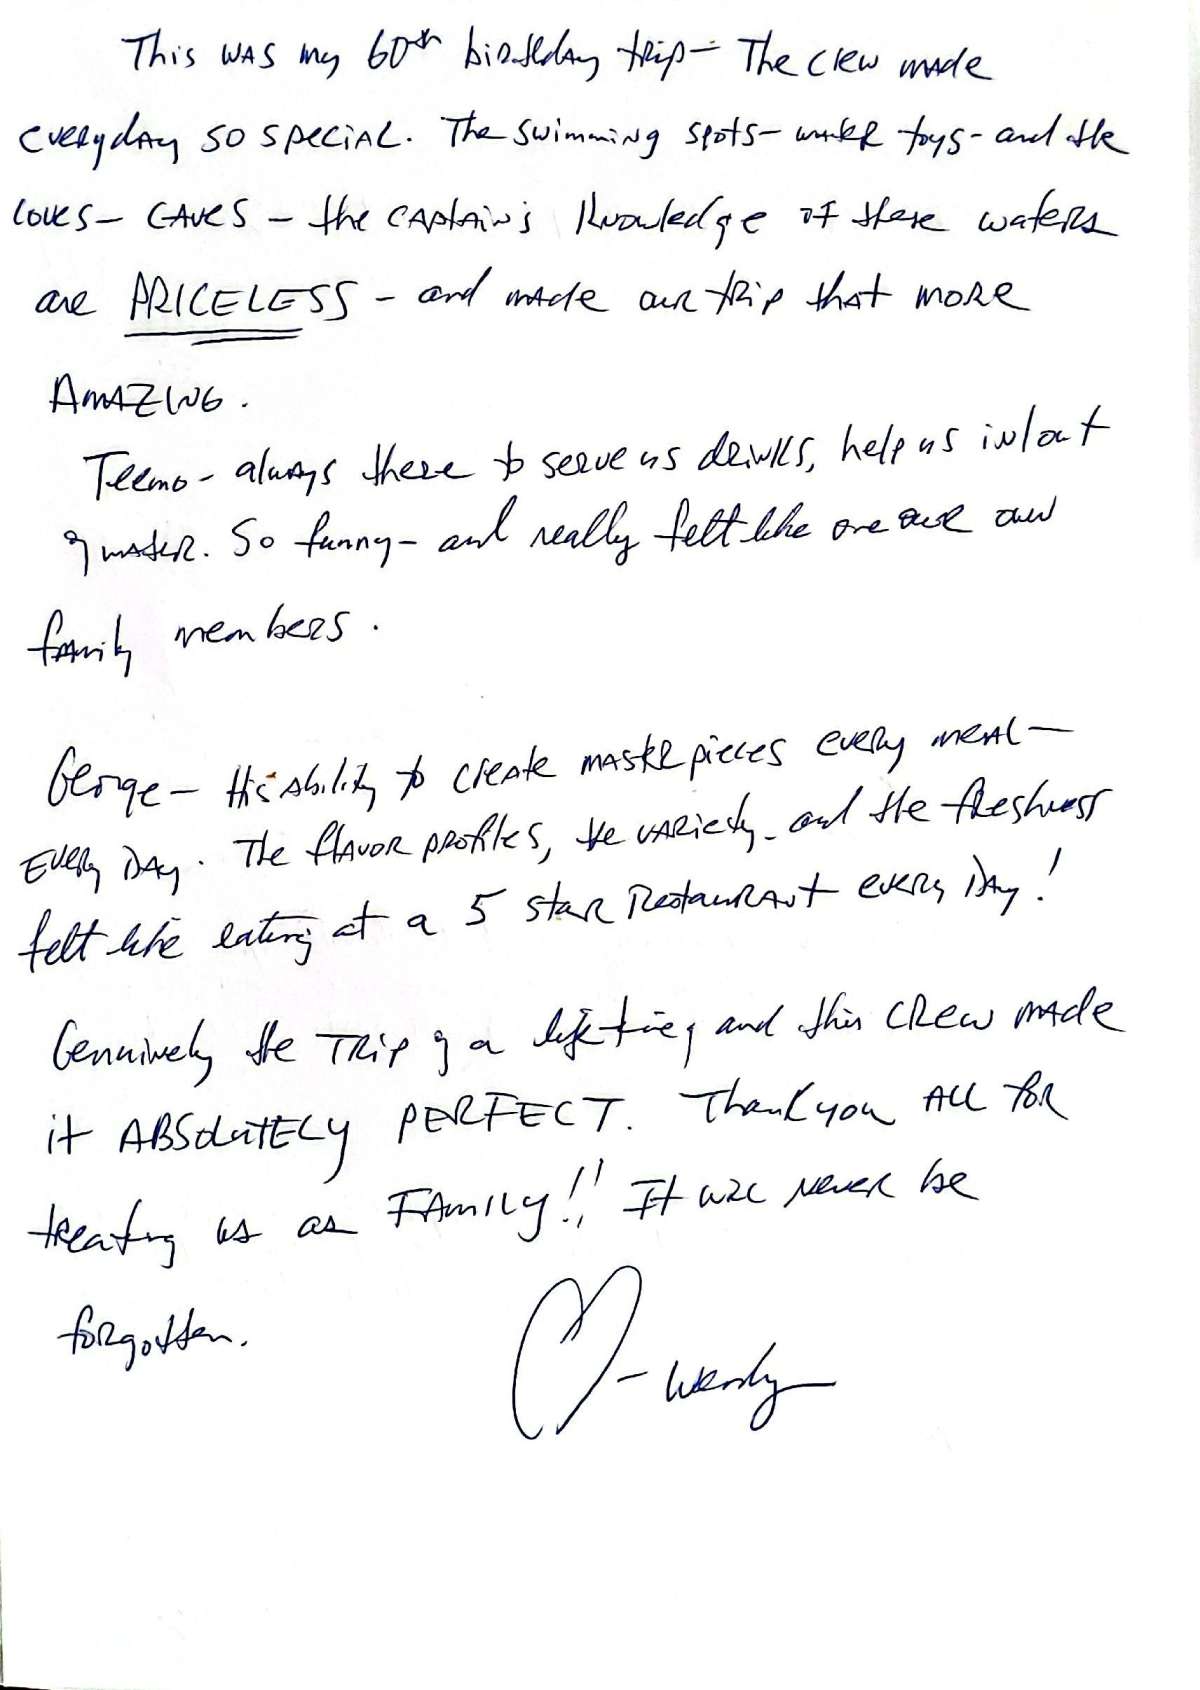 This was my 60th birthday trip - The crew made
everyday so special. The swimming spots - water toys - and the
coves - CAVES - the captain's knowledge of these waters
are PRICELESS - and made our trip that more
AMAZING.
Teemo - always there to serve us drinks, help us in/out
of water. So funny - and really felt like one our own
family members.
George - His ability to create masterpieces every meal -
Every Day. The flavor profiles, the variety - and the freshness
felt like eating at a 5 star Restaurant every Day!
Genuinely the TRIP of a lifetime, and this crew made
it ABSOLUTELY PERFECT. Thank you ALL for
treating us as FAMILY!! It will never be
forgotten.
- Wendy